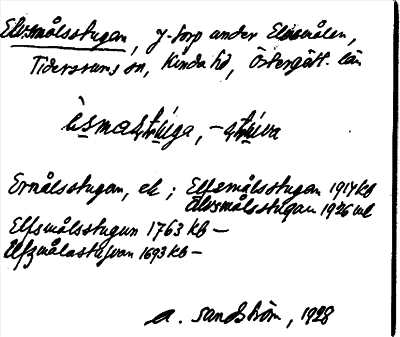 Elvsmålsstugan, f-torp under Elvsmålen,
Tidersrums sn, Kinda hd, Östergötl. län
Ermålsstugan, ek ; Elfsmålsstugan 1917 kb
Elvsmålsstugan 1926 ml
Elfsmålsstugun 1763 kb –
Elfzmålastufvan 1693 kb –
A. Sandström, 1928